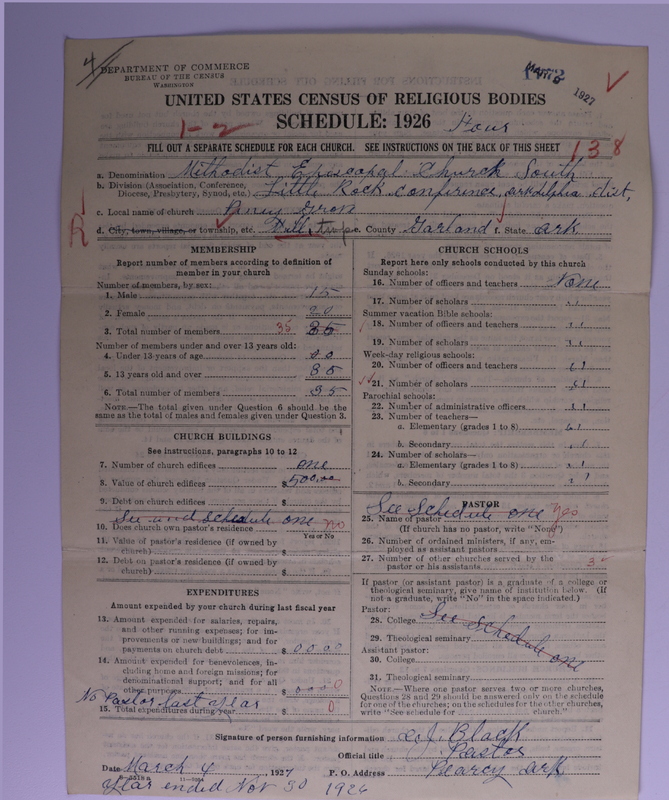 4
DEPARTMENT OF COMMERCE
BUREAU OF THE CENSUS
WASHINGTON
1927
UNITED STATES CENSUS OF RELIGIOUS BODIES
1-2
SCHEDULE: 1926 Four
FILL OUT A SEPARATE SCHEDULE FOR EACH CHURCH. SEE INSTRUCTIONS ON THE BACK OF THIS SHEET
138
a. Denomination Methodist Episcopal Church South
b. Division (Association, Conference, Diocese, Presbytery, Synod, etc.) Little Rock conference, arkdelphia dist,
c. Local name of church Piney Grove
R
d. City, town, village, or township, etc. Hill, twp e. County Garland f. State ark.
MEMBERSHIP
Report number of members according to definition of
member in your church
Number of members, by sex:
1. Male 15
2. Female 20
3. Total number of members 35 35
Number of members under and over 13 years old:
4. Under 13 years of age 00
5. 13 years old and over 35
6. Total number of members 35
NOTE.—The total given under Question 6 should be the
same as the total of males and females given under Question 3.
CHURCH BUILDINGS
See instructions, paragraphs 10 to 12
7. Number of church edifices one
8. Value of church edifices $500.00
9. Debt on church edifices $
See Schedule one no
10. Does church own pastor's residence
Yes or No
11. Value of pastor's residence (if owned by
church) $
12. Debt on pastor's residence (if owned by
church) $
EXPENDITURES
Amount expended by your church during last fiscal year
13. Amount expended for salaries, repairs,
and other running expenses; for im-
provements or new buildings; and for
payments on church debt $ 0000
14. Amount expended for benevolences, in-
cluding home and foreign missions; for
denominational support; and for all
other purposes $ 0000
No Pastor last year
15. Total expenditures during year $ 0
CHURCH SCHOOLS
Report here only schools conducted by this church
Sunday schools:
16. Number of officers and teachers None
17. Number of scholars ,,
Summer vacation Bible schools:
18. Number of officers and teachers ,,
19. Number of scholars ,,
Week-day religious schools:
20. Number of officers and teachers ,,
21. Number of scholars ,,
Parochial schools:
22. Number of administrative officers ,,
23. Number of teachers—
a. Elementary (grades 1 to 8) ,,
b. Secondary ,,
24. Number of scholars—
a. Elementary (grades 1 to 8) ,,
b. Secondary ,,
PASTOR
See Schedule one yes
25. Name of pastor
(If church has no pastor, write "None")
26. Number of ordained ministers, if any, em-
ployed as assistant pastors
27. Number of other churches served by the
pastor or his assistants 3
If pastor (or assistant pastor) is a graduate of a college or
theological seminary, give name of institution below. (If
not a graduate, write "No" in the space indicated.)
Pastor:
28. College See Schedule one
29. Theological seminary
Assistant pastor:
30. College
31. Theological seminary
NOTE.—Where one pastor serves two or more churches,
Questions 28 and 29 should be answered only on the schedule
for one of the churches; on the schedules for the other churches,
write "See schedule for church."
Signature of person furnishing information L J. Black
Official title Pastor
Date March 4, 1927 P. O. Address Pearcy ark
year ended Nov 30 1926